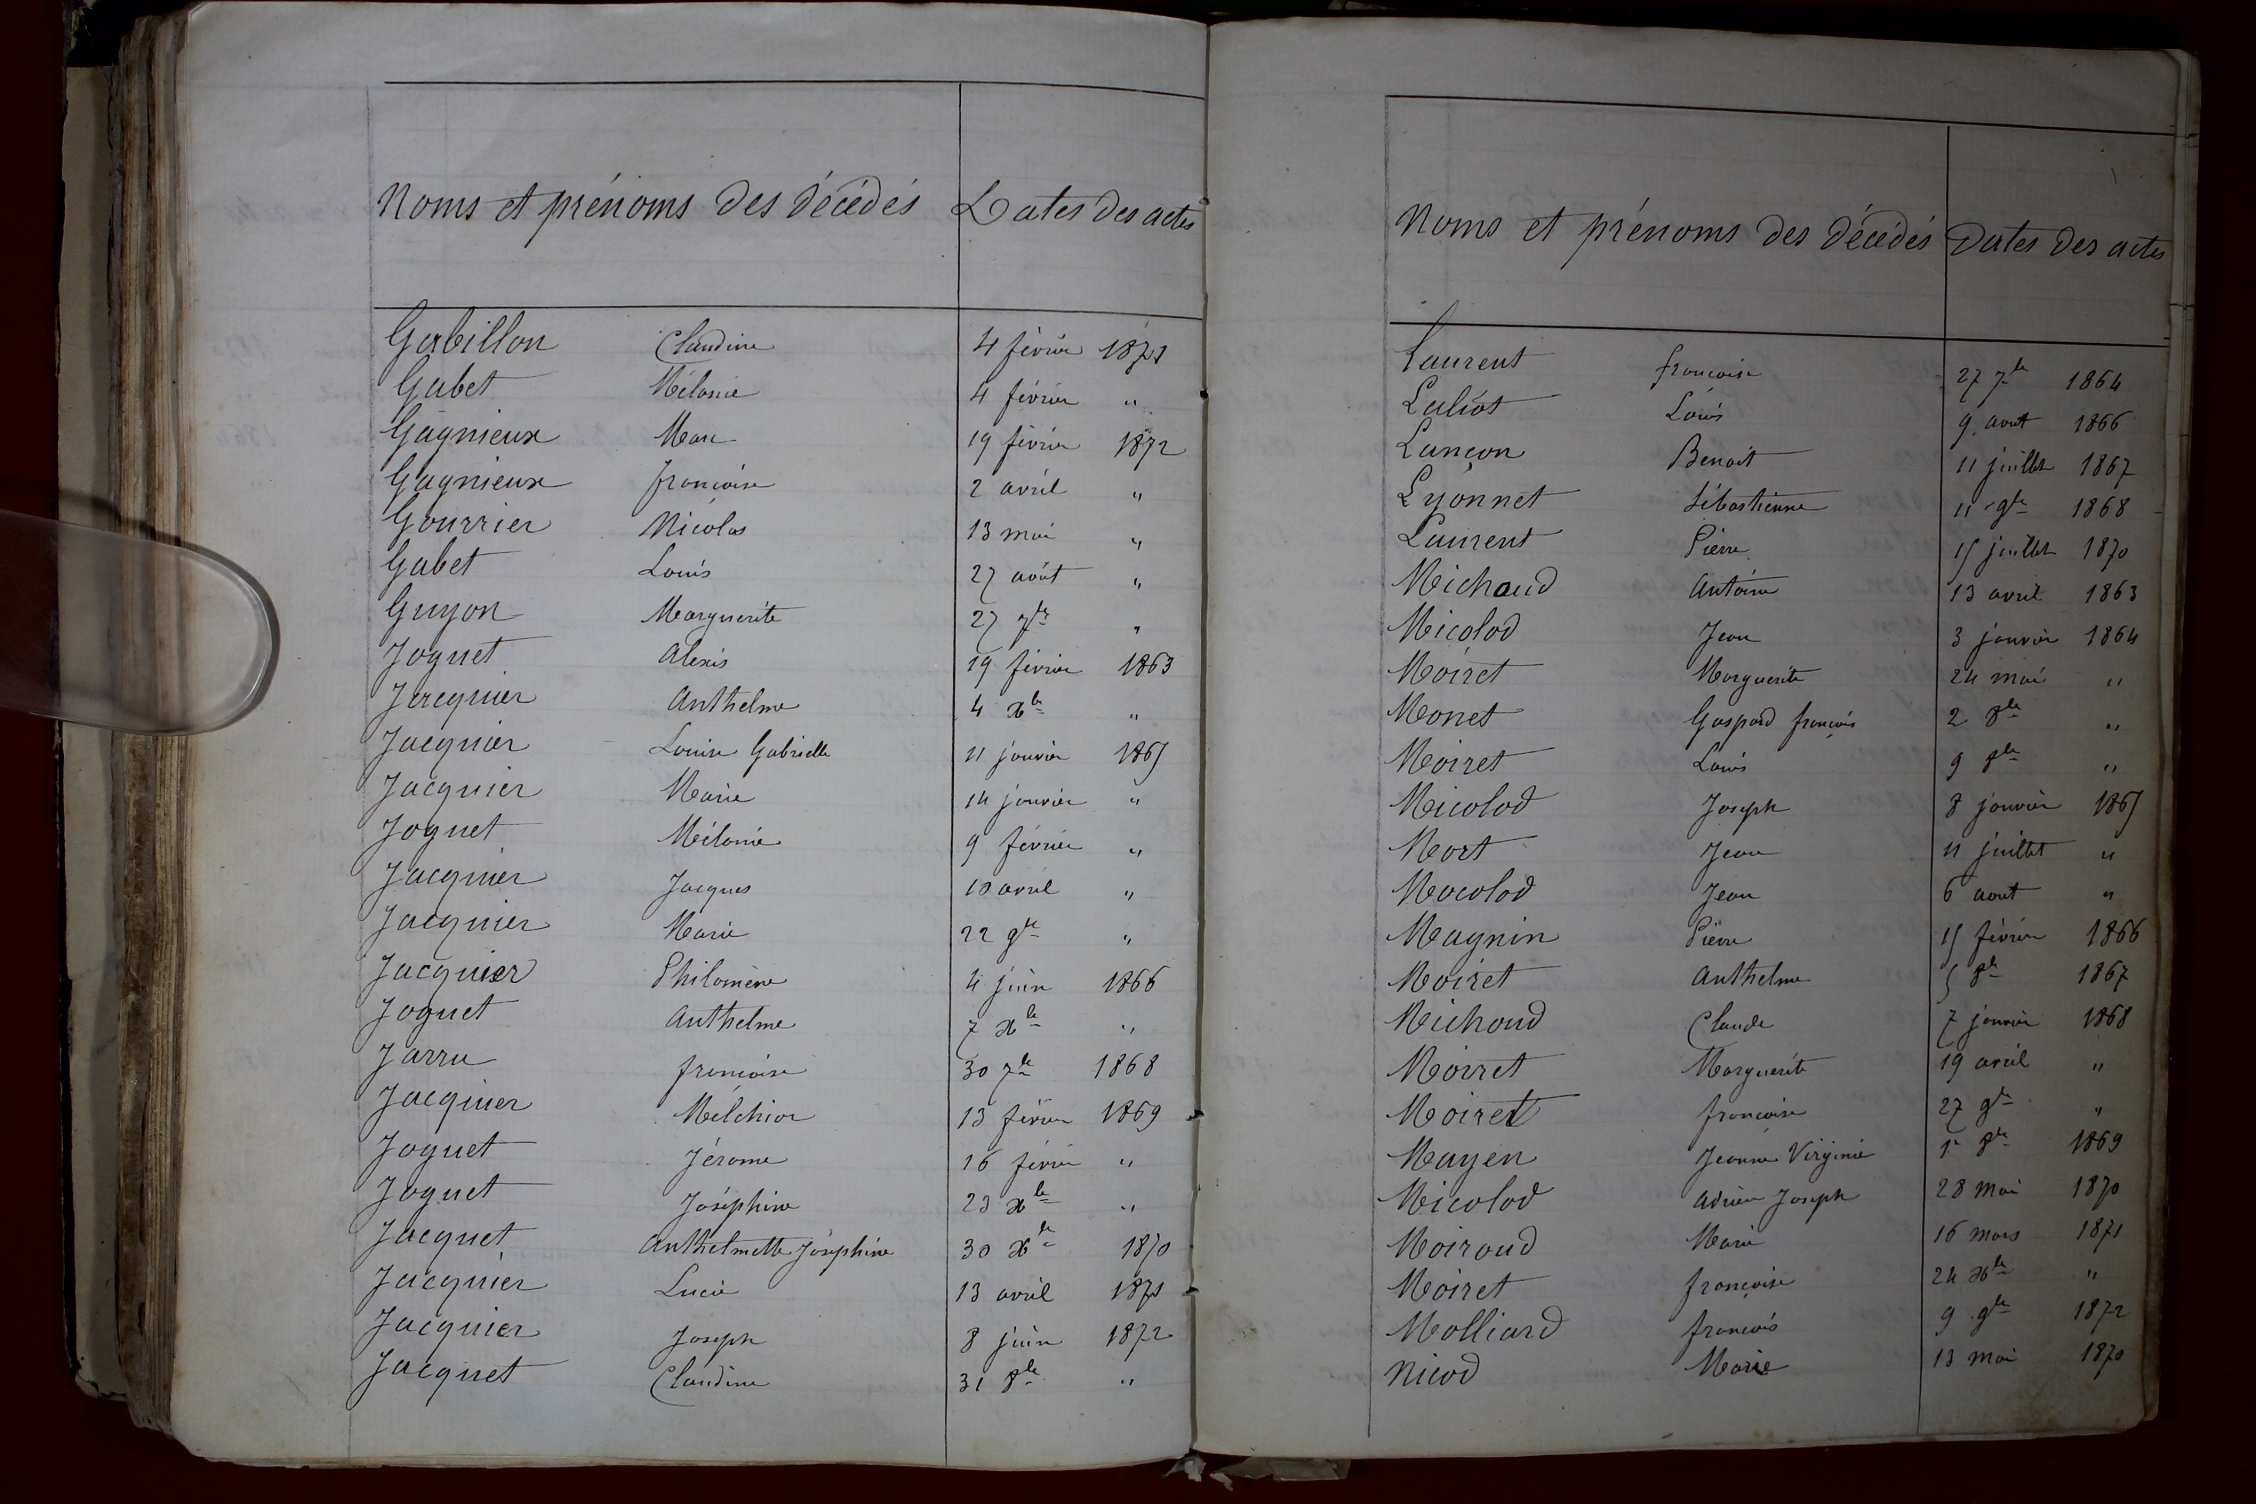 Noms et prénoms des décédés Dates des actes
Gabillon Claudine 4 février 1871
Gabet Mélanie 4 février "
Gagnieux Marc 19 février 1872
Gagnieux françoise 2 avril "
Gourrier Nicolas 13 mai "
Gabet Louis 27 août "
Guyon Marguerite 27 7bre "
Joguet Alexis 19 février 1863
Jacquier Anthelme 4 Xbre "
Jacquier Louise Gabrielle 11 janvier 1865
Jacquier Marie 14 janvier "
Joguet Mélanie 9 février "
Jacquier Jacques 10 avril "
Jacquier Marie 22 9bre "
Jacquier Philomène 4 juin 1866
Joguet Anthelme 7 Xbre "
Jarru françoise 30 7bre 1868
Jacquier Melchior 13 février 1869
Joguet Jérome 16 février "
Joguet Joséphine 23 Xbre "
Jacquet Anthelmette Joséphine 30 Xbre 1870
Jacquier Lucie 13 avril 1871
Jacquier Joseph 8 juin 1872
Jacquet Claudine 31 8bre "
Noms et prénoms des décédés Dates des actes
Laurent françoise 27 7bre 1864
Laliot Louis 9 aout 1866
Lançon Benoit 11 juillet 1867
Lyonnet Sébastienne 11 9bre 1868
Laurent Pierre 15 juillet 1870
Michaud Antoine 13 avril 1863
Micolod Jean 3 janvier 1864
Moiret Marguerite 24 mai "
Monet Gaspard françois 2 8bre "
Moiret Louis 9 8bre "
Micolod Joseph 8 janvier 1865
Mort Jean 11 juillet "
Mocolod Jean 6 aout "
Magnin Pierre 15 février 1866
Moiret Anthelme 5 8bre 1867
Michoud Claude 7 janvier 1868
Moiret Marguerite 19 avril "
Moiret françoise 27 9bre "
Mayen Jeanne Virginie 1er 8bre 1869
Micolod Adrien Joseph 28 mai 1870
Moiroud Marie 16 mars 1871
Moiret françoise 24 Xbre "
Molliard françois 9 9bre 1872
Nicod Marie 13 mai 1870